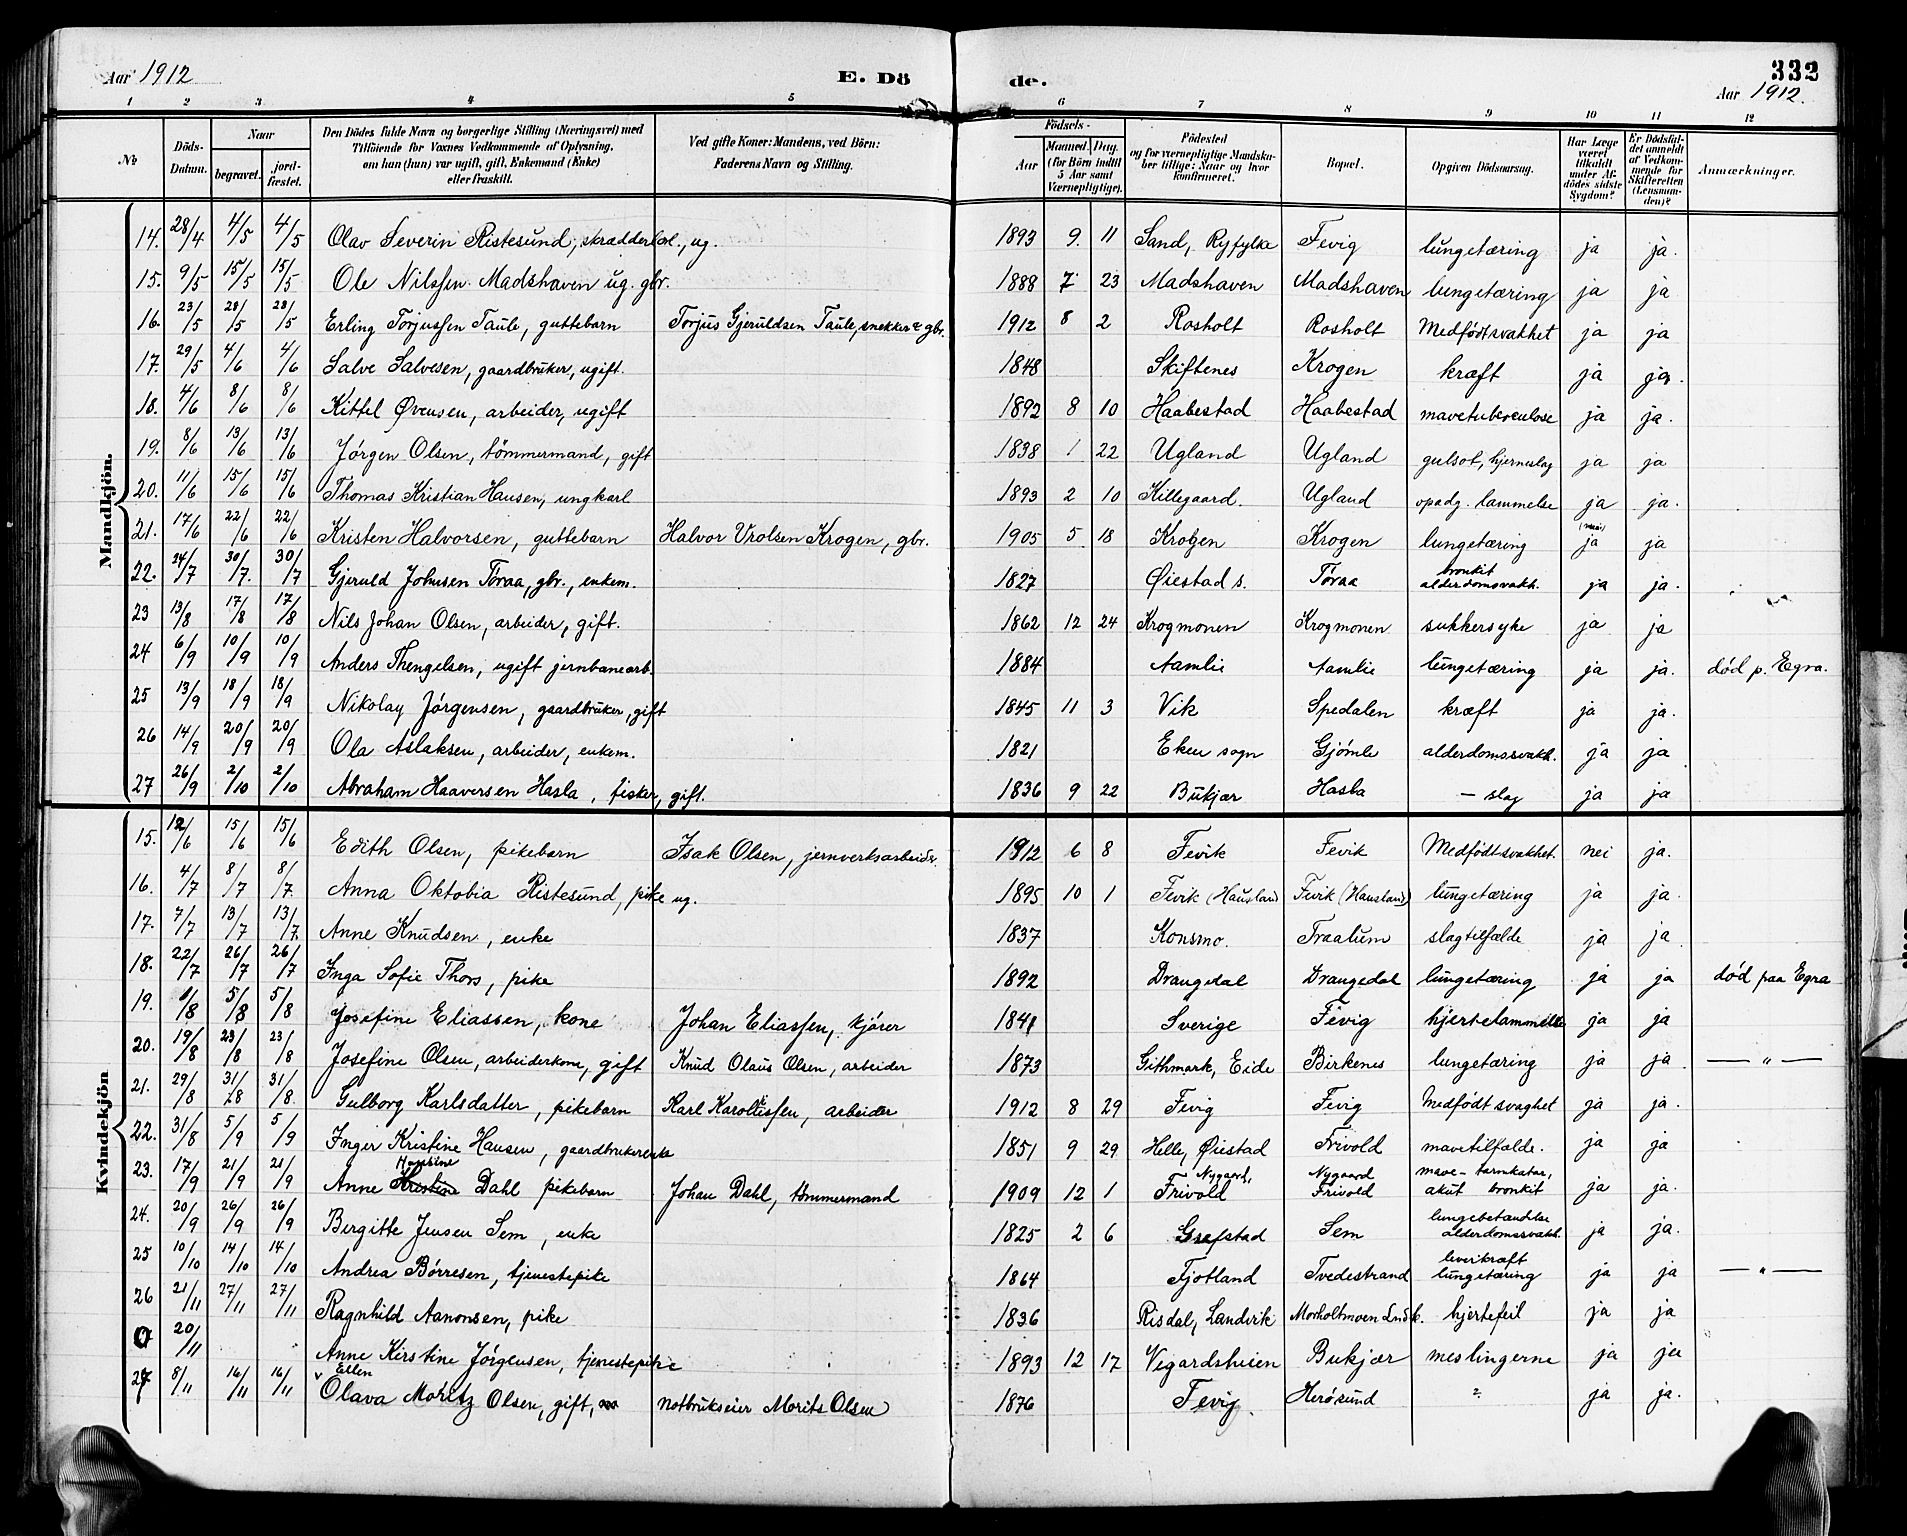 Aar 1912
E. Dö
de.
332
Aar 1912.
1 2 3 4 5 6 7 8 9 10 11 12
No
Döds-Datum.
Naar
begravet.
jordfæstet.
Den Dödes fulde Navn og borgerlige Stilling (Næringsvei) med
Tilföiende for Voxnes Vedkommende af Oplysning,
om han (hun) var ugift, gift, Enkemand (Enke)
eller fraskilt.
Ved gifte Koner: Mandens, ved Börn:
Faderens Navn og Stilling.
Födsels-
Aar
Maaned. Dag.
(for Börn indtil
5 Aar samt
Værnepligtige).
Födested
og for værnepligtige Mandskaber tillige: Naar og hvor
konfirmeret.
Bopæl.
Opgiven Dödsaarsag.
Har Læge
været
tilkaldt
under Afdödes sidste
Sygdom?
Er Dödsfaldet anmeldt
af Vedkommende for
Skifteretten
(Lensmanden)?
Anmærkninger.
Mandkjön.
14. 28/4 4/5 4/5 Olav Severin Ristesund, skrædderlærl., ug. 1893 9. 11 Sand, Ryfylke Fevig lungetæring ja ja.
15. 9/5 15/5 15/5 Ole Nilssen Madshaven ug. gbr. 1888 7 23 Madshaven Madshaven lungetæring ja ja
16. 23/5 28/5 28/5 Erling Torjussen Taule, guttebarn Torjus Gjeruldsen Taule, snekker & gbr. 1912 8 2 Rosholt Rosholt Medfödt svakhet ja ja
17. 29/5 4/6 4/6 Salve Salvesen, gaardbruker, ugift. 1848 Skiftenes Krogen kræft ja ja.
18. 4/6 8/6 8/6 Kittel Øvensen, arbeider, ugift 1892 8 10 Haabestad Haabestad mavetuberculose ja ja.
19. 8/6 13/6 13/6 Jörgen Olsen, tömmermand, gift 1838 1 22 Ugland Ugland gulsot, hjerneslag ja ja
20. 11/6 15/6 15/6 Thomas Kristian Hansen, ungkarl 1893 2 10 Killegaard. Ugland opadg. lammelse ja ja.
21. 17/6 22/6 22/6 Kristen Halvorsen, guttebarn Halvor Vrolsen Krogen, gbr. 1905 5 18 Krogen Krogen lungetæring ja ja
22. 24/7 30/7. 30/7 Gjeruld Johnsen Töraa, gbr., enkem. 1827 Øiestad s. Töraa bronkit alderdomsvakh. ja ja.
23 13/8 17/8 17/8 Nils Johan Olsen, arbeider, gift. 1862 12 24 Krogmonen Krogmonen sukkersyke ja ja
24 6/9 10/9 10/9 Anders Thengelsen, ugift jernbanearb. 1884 Aamlie Aamlie lungetæring ja ja. död p. Egra.
25 13/9 18/9 18/9 Nikolay Jörgensen, gaardbruker, gift 1845 11 3 Vik Spedalen kræft ja ja.
26 14/9 20/9 20/9 Ola Aslaksen, arbeider, enkem. 1821 Eken sogn Gjömle alderdomssvakh. ja ja
27 26/9 2/10 2/10 Abraham Haaversen Hasla, fisker, gift. 1836 9 22 Bukjær Hasla – slag ja ja
Kvindekjön
15. 12/6 15/6 15/6 Edith Olsen, pikebarn Isak Olsen, jernverksarbeider 1912 6 8 Fevik Fevik Medfödt svakhet. nei ja.
16. 4/7 8/7 8/7 Anna Oktobia Ristesund, pike ug. 1895 10 1 Fevik (Hausland) Fevik (Hausland) lungetæring ja ja.
17. 7/7 13/7 13/7 Anne Knudsen, enke 1837 Konsmo. Traalum slagtilfælde ja ja
18. 22/7 26/7 26/7 Inga Sofie Thors, pike 1892 Drangedal Drangedal lungetæring ja ja död paa Egra
19. 1/8 5/8 5/8 Josefine Eliassen, kone Johan Eliassen, kjörer 1841 Sverige Fevig hjertelammelse ja ja
20. 19/8 23/8 23/8 Josefine Olsen, arbeiderkone, gift Knud Olaus Olsen, arbeider 1873 Githmark, Eide Birkenes lungetæring ja ja — " —
21. 29/8 31/8 31/8 Gulborg Karlsdatter, pikebarn Karl Karolissen, arbeider 1912 8 29 Fevig Fevig Medfödt svaghet ja ja.
22. 31/8 5/9 5/9 Inger Kristine Hansen, gaardbrukerenke 1851 9 29 Helle, Øiestad Frivold mavetilfælde. ja ja
23. 17/9 21/9 21/9 Anne Kristine Hansine Dahl pikebarn Johan Dahl, tömmermand 1909 12 1 Nygaard, Frivold Nygaard Frivold mave-tarmkatar, akut bronkit ja ja.
24. 20/9 26/9 26/9 Bergitte Jensen Sem, enke 1825 2 6 Grefstad Sem lungebetændelse alderdomssvakh. ja ja.
25 10/10 14/10 14/10 Andrea Börresen, tjenestepike 1864 Fjotland Tvedestrand leverkræft lungetæring ja ja — " —
26 21/11 27/11 27/11 Ragnhild Aanonsen, pike 1836 Risdal, Landvik Morholtmoen Lndk. hjertefeil ja ja
0 20/11 Anne Kirstine Jörgensen, tjenestepike 1893 12 17 Vegardsheien Bukjær meslingerne ja ja
27 8/11 16/11 16/11 Ellen Olava Moritz Olsen, gift, Notbrukseier Morits Olsen 1876 Fevig. Herösund ? ja ja.